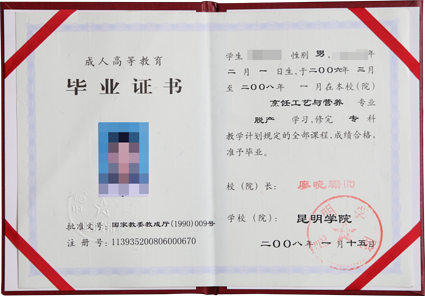 成人高等教育
毕业证书
批准文号: 国家教委教成厅(1990)009号
注册号: 113935200806000670
学生 性别 男, 年
二月一日生,于二00六年三月
至二00八年一月在本校(院)
烹饪工艺与营养 专业
脱产 学习,修完 专 科
教学计划规定的全部课程,成绩合格,
准予毕业。
校(院)长:
学校(院): 昆明学院
二00八年一月十五日